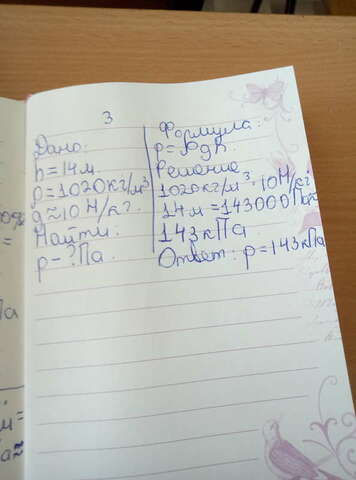 3
Дано:
h=14м.
ρ=1020кг/м³
g≈10 Н/кг.
Найти:
p-?Па.
Формула:
p=ρgh.
Решение
1020кг/м³·10Н/кг·
14м=143000Па≈
143кПа.
Ответ: p=143кПа